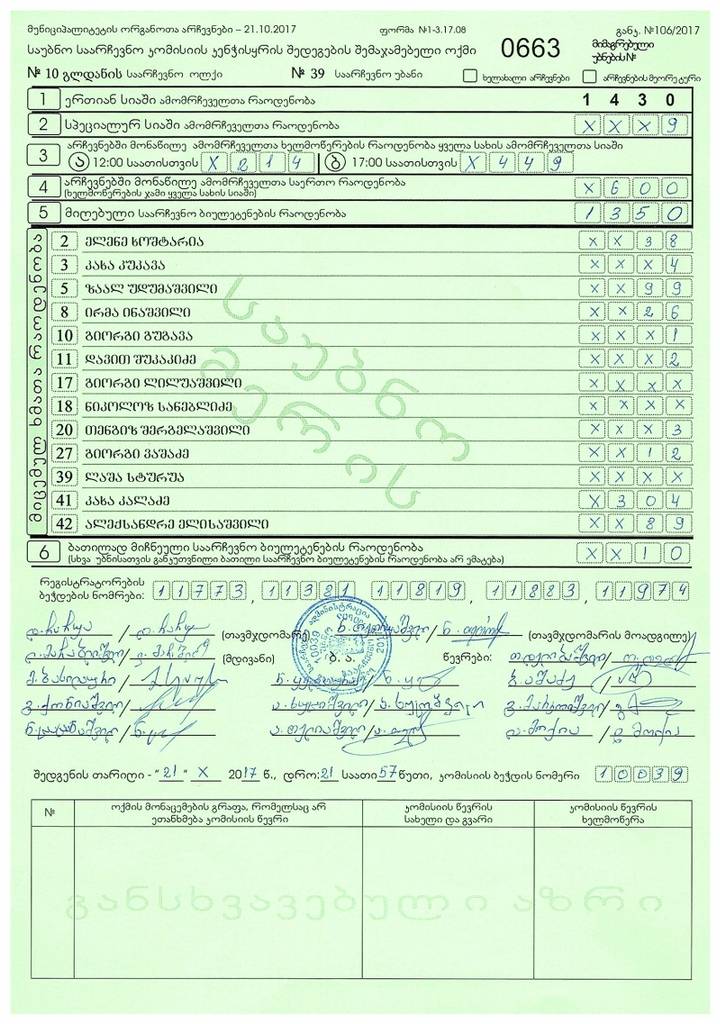 მუნიციპალიტეტის ორგანოთა არჩევნები – 21.10.2017 ფორმა №1-3.17.08 განკ. №106/2017
საუბნო საარჩევნო კომისიის კენჭისყრის შედეგების შემაჯამებელი ოქმი 0663 მიმაგრებული უბნების №
№ 10 გლდანის საარჩევნო ოლქი № 39 საარჩევნო უბანი ხელახალი არჩევნები არჩევნების მეორე ტური
1 ერთიან სიაში ამომრჩეველთა რაოდენობა 1 4 3 0
2 სპეციალურ სიაში ამომრჩეველთა რაოდენობა X X X 9
არჩევნებში მონაწილე ამომრჩეველთა ხელმოწერების რაოდენობა ყველა სახის ამომრჩეველთა სიაში
3 ა 12:00 საათისთვის X 2 1 4 ბ 17:00 საათისთვის X 4 4 9
4 არჩევნებში მონაწილე ამომრჩეველთა საერთო რაოდენობა X 6 0 0
(ხელმოწერების ჯამი ყველა სახის სიაში)
5 მიღებული საარჩევნო ბიულეტენების რაოდენობა 1 3 5 0
მიცემულ ხმათა რაოდენობა
2 ელენე ხოშტარია X X 3 8
3 კახა კუკავა X X X 4
5 ზაალ უდუმაშვილი X X 9 9
8 ირმა ინაშვილი X X 2 6
10 გიორგი გუგავა X X X 1
11 დავით შუკაკიძე X X X 2
17 გიორგი ლილუაშვილი X X X X
18 ნიკოლოზ სანებლიძე X X X X
20 თენგიზ შერგელაშვილი X X X 3
27 გიორგი ვაშაძე X X 1 2
39 ლაშა სტურუა X X X X
41 კახა კალაძე X 3 0 4
42 ალექსანდრე ელისაშვილი X X 8 9
საუბნო
მერის
6 ბათილად მიჩნეული საარჩევნო ბიულეტენების რაოდენობა X X 1 0
(სხვა უბნისათვის განკუთვნილი ბათილი საარჩევნო ბიულეტენების რაოდენობა არ ემატება)
რეგისტრატორების
ბეჭდების ნომრები: 11773, 11321, 11819, 11883, 11974
(თავმჯდომარე) (თავმჯდომარის მოადგილე)
(მდივანი) ბ. ა. წევრები:
შედგენის თარიღი - "21" X 2017 წ., დრო: 21 საათი 57 წუთი, კომისიის ბეჭდის ნომერი 10039
№ ოქმის მონაცემების გრაფა, რომელსაც არ ეთანხმება კომისიის წევრი კომისიის წევრის სახელი და გვარი კომისიის წევრის ხელმოწერა
განსხვავებული აზრი